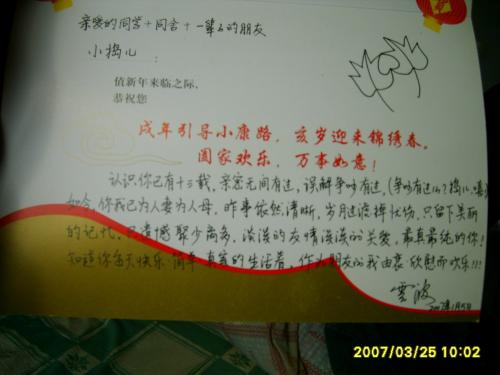 亲爱的同学+同舍+一辈子的朋友
小捣儿:
值新年来临之际,
恭祝您
戌年引导小康路,亥岁迎来锦绣春。
阖家欢乐,万事如意!
认识你已有十三载,亲密无间有过,误解争吵有过,(争吵有过
如今,你我已为人妻为人母,昨事依然清晰,岁月过滤掉忧伤,只留下美丽
的记忆。只遗憾聚少离多,淡淡的友情淡淡的关爱,最真最纯的你!
知道你每天快乐 简单 真实的生活着,作为朋友的我由衷欣慰而欢乐!!!
2007/03/25 10:02